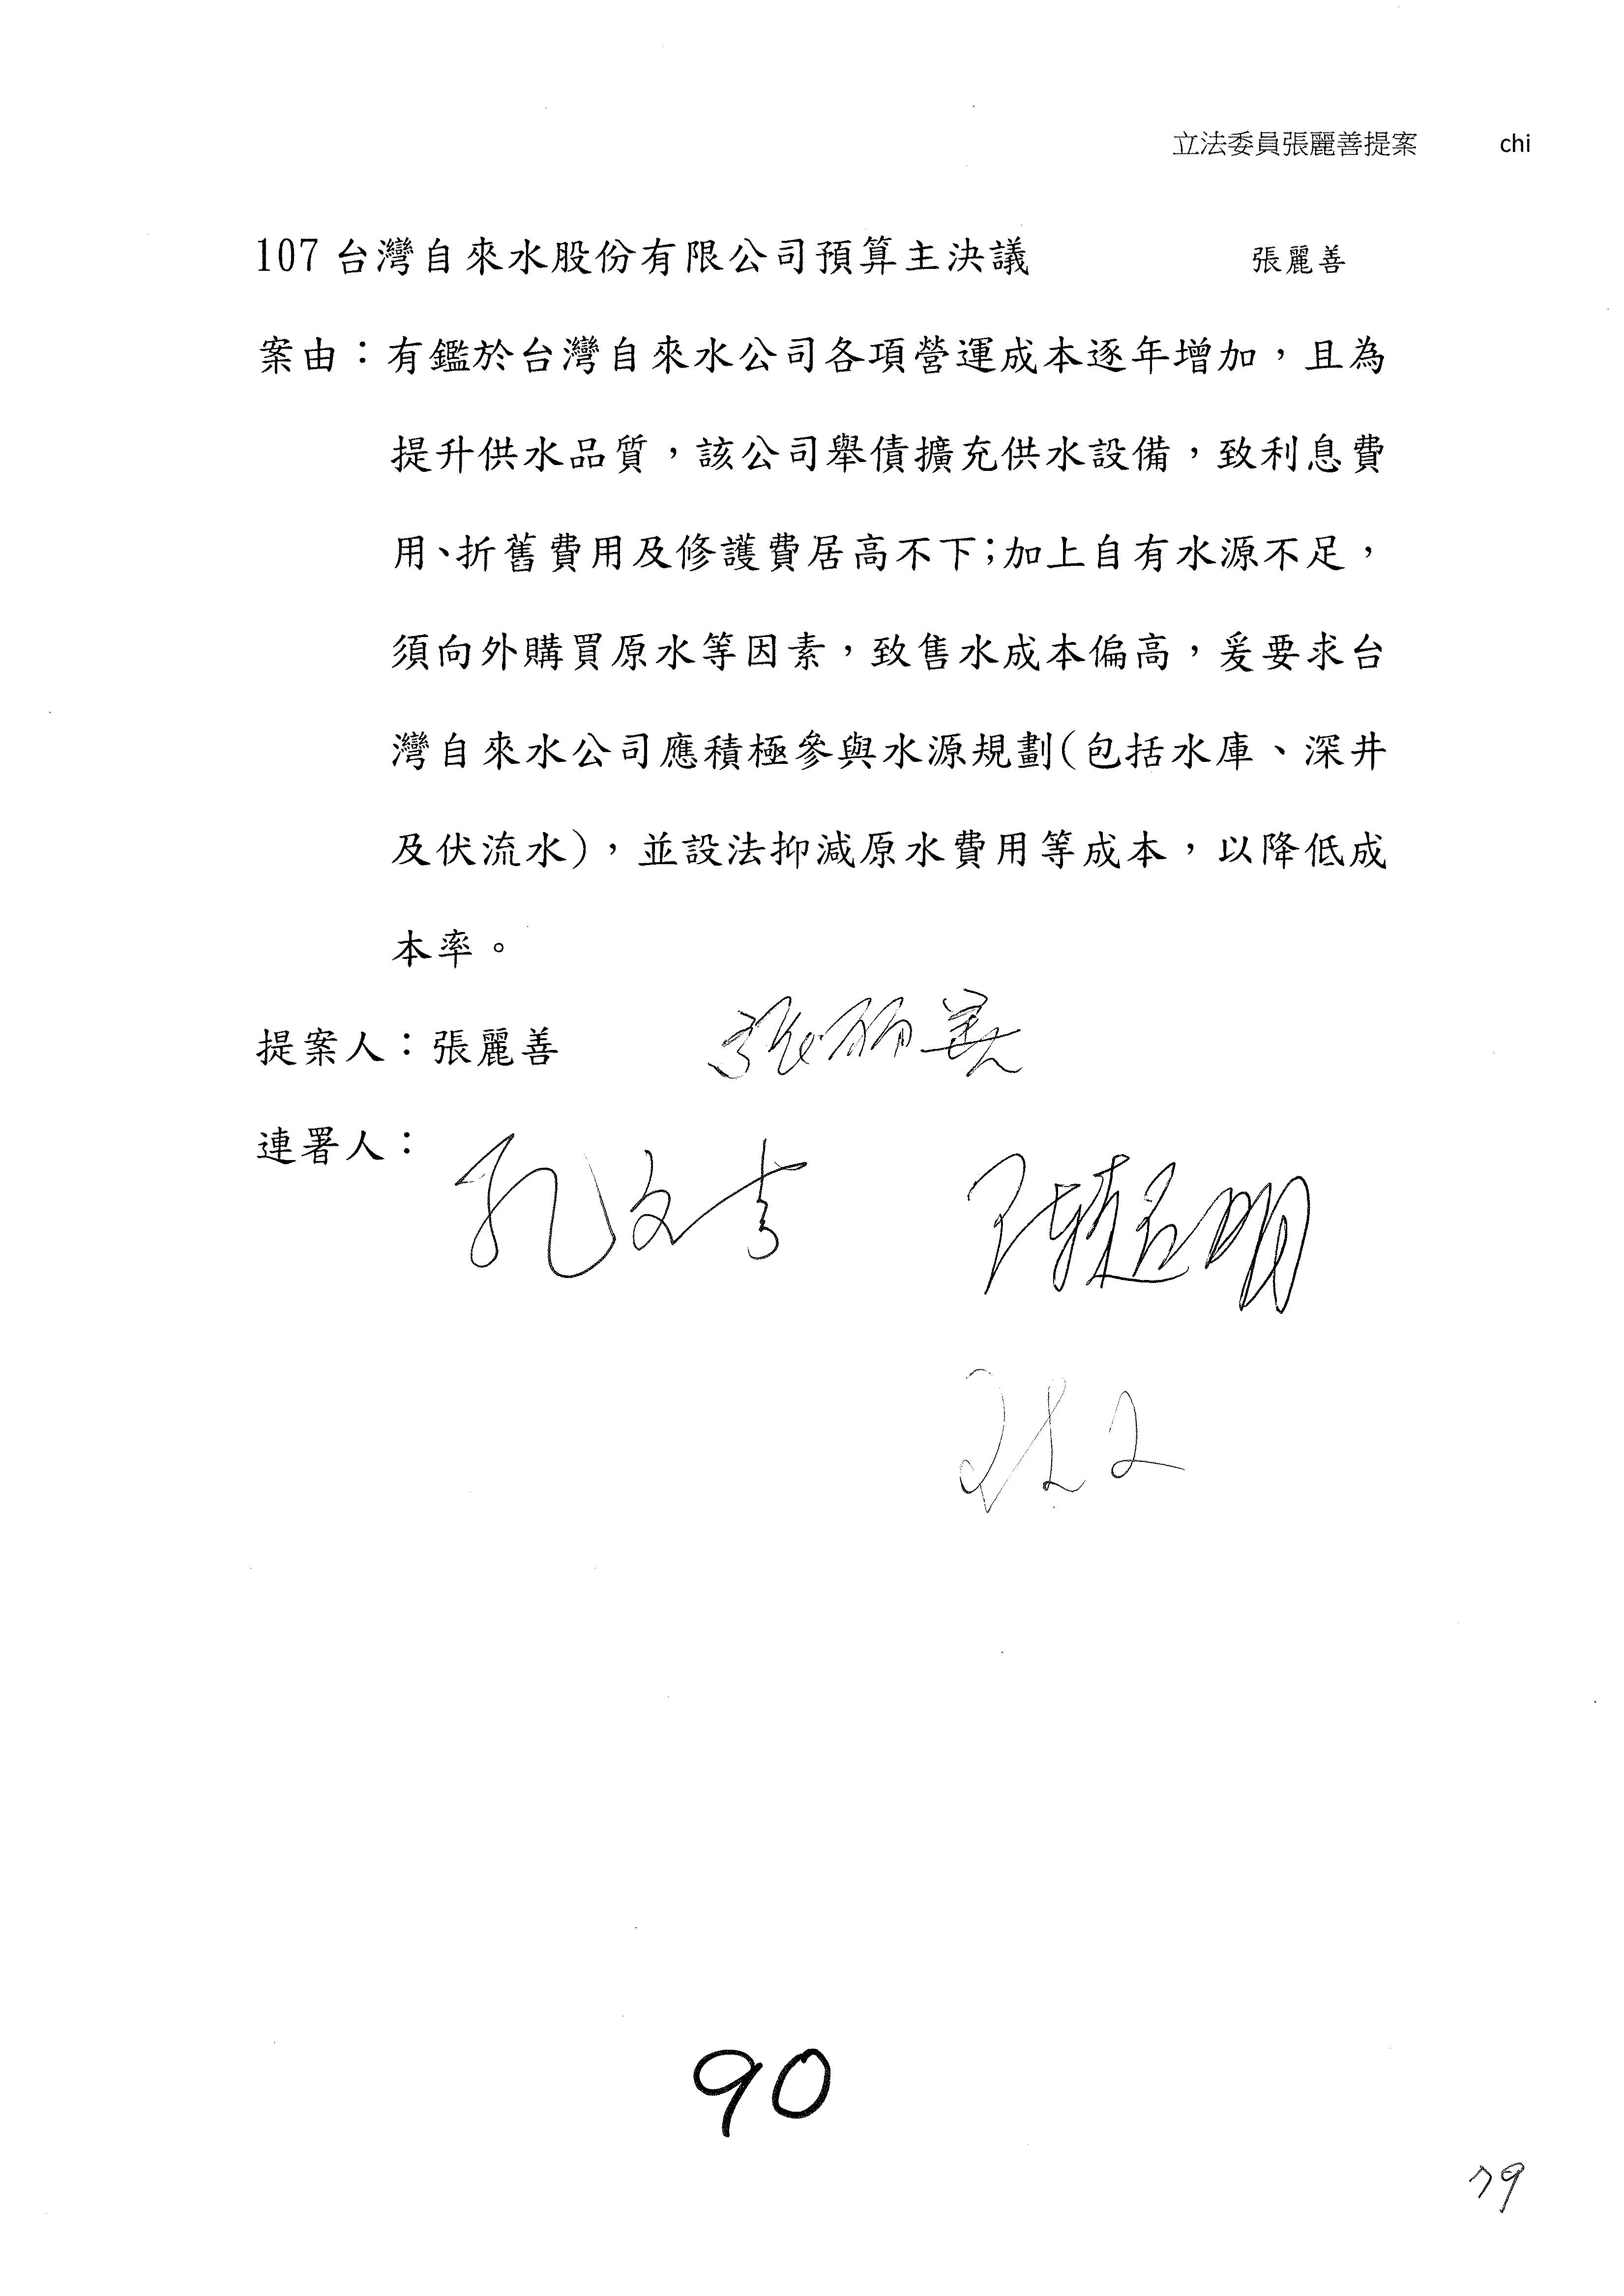 立法委員張麗善提案 chi
107 台灣自來水股份有限公司預算主決議 張麗善
案由：有鑑於台灣自來水公司各項營運成本逐年增加，且為
提升供水品質，該公司舉債擴充供水設備，致利息費
用、折舊費用及修護費居高不下；加上自有水源不足，
須向外購買原水等因素，致售水成本偏高，爰要求台
灣自來水公司應積極參與水源規劃(包括水庫、深井
及伏流水)，並設法抑減原水費用等成本，以降低成
本率。
提案人：張麗善 張麗善
連署人：
孔文吉 陳超明
90
79